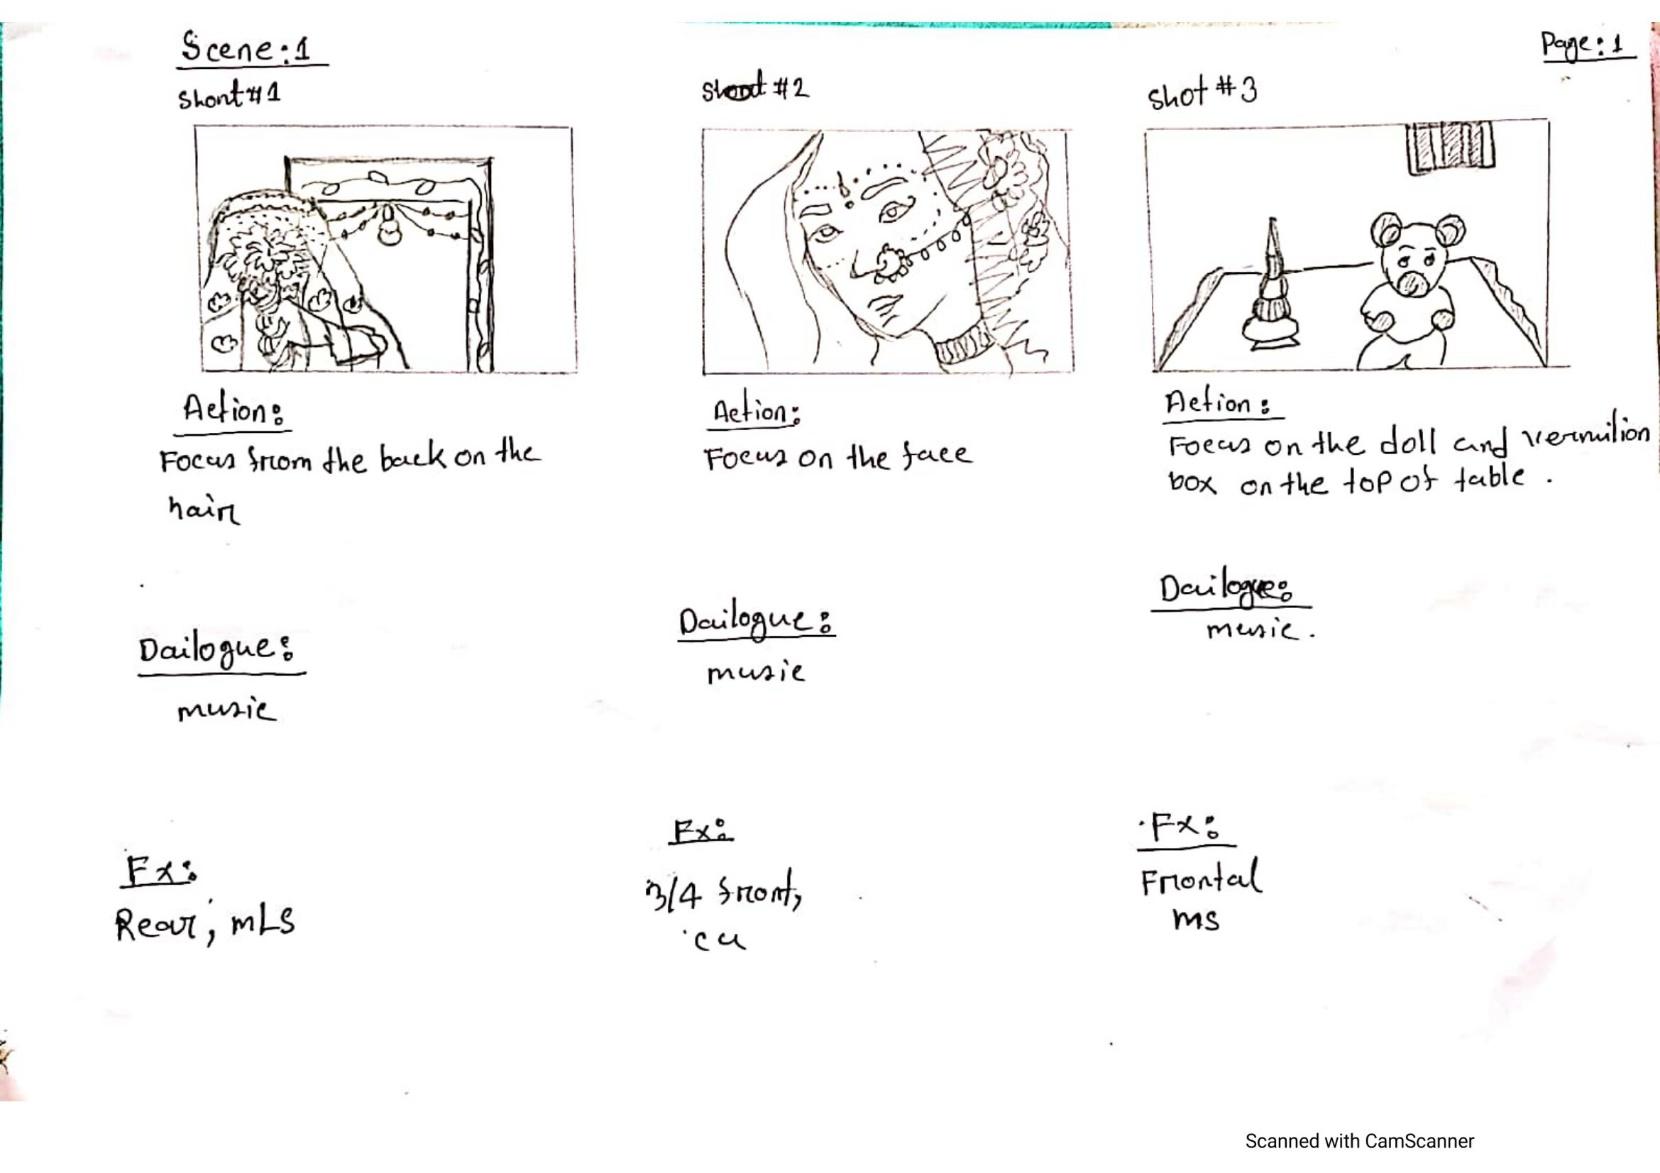 Scene:1
Page:1
Shont#1
Shoot #2
Shot #3
Action:
Focus from the back on the
hair
Action:
Focus on the face
Action:
Focus on the doll and vermilion
box on the top of table.
Dailogue:
music
Dailogue:
music
Dailogue:
music.
Fx:
Rear, MLS
Fx:
3/4 front,
cu
Fx:
Frontal
MS
Scanned with CamScanner